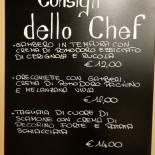 Consigli
dello Chef
• GAMBERO IN TEMPURA CON
CREMA DI POMODORO ESSICCATO
DI CERIGNOLA E RUCOLA
€ 12,00
• ORECCHIETTE CON GAMBERI,
CREMA DI POMODORO PACHINO
E MELANZANA VIOLA
€ 12,00
• TAGLIATA DI CUORE DI
SCAMONE CON CREMA DI
PECORINO FORTE E PATATA
SCHIACCIATA
€ 14,00